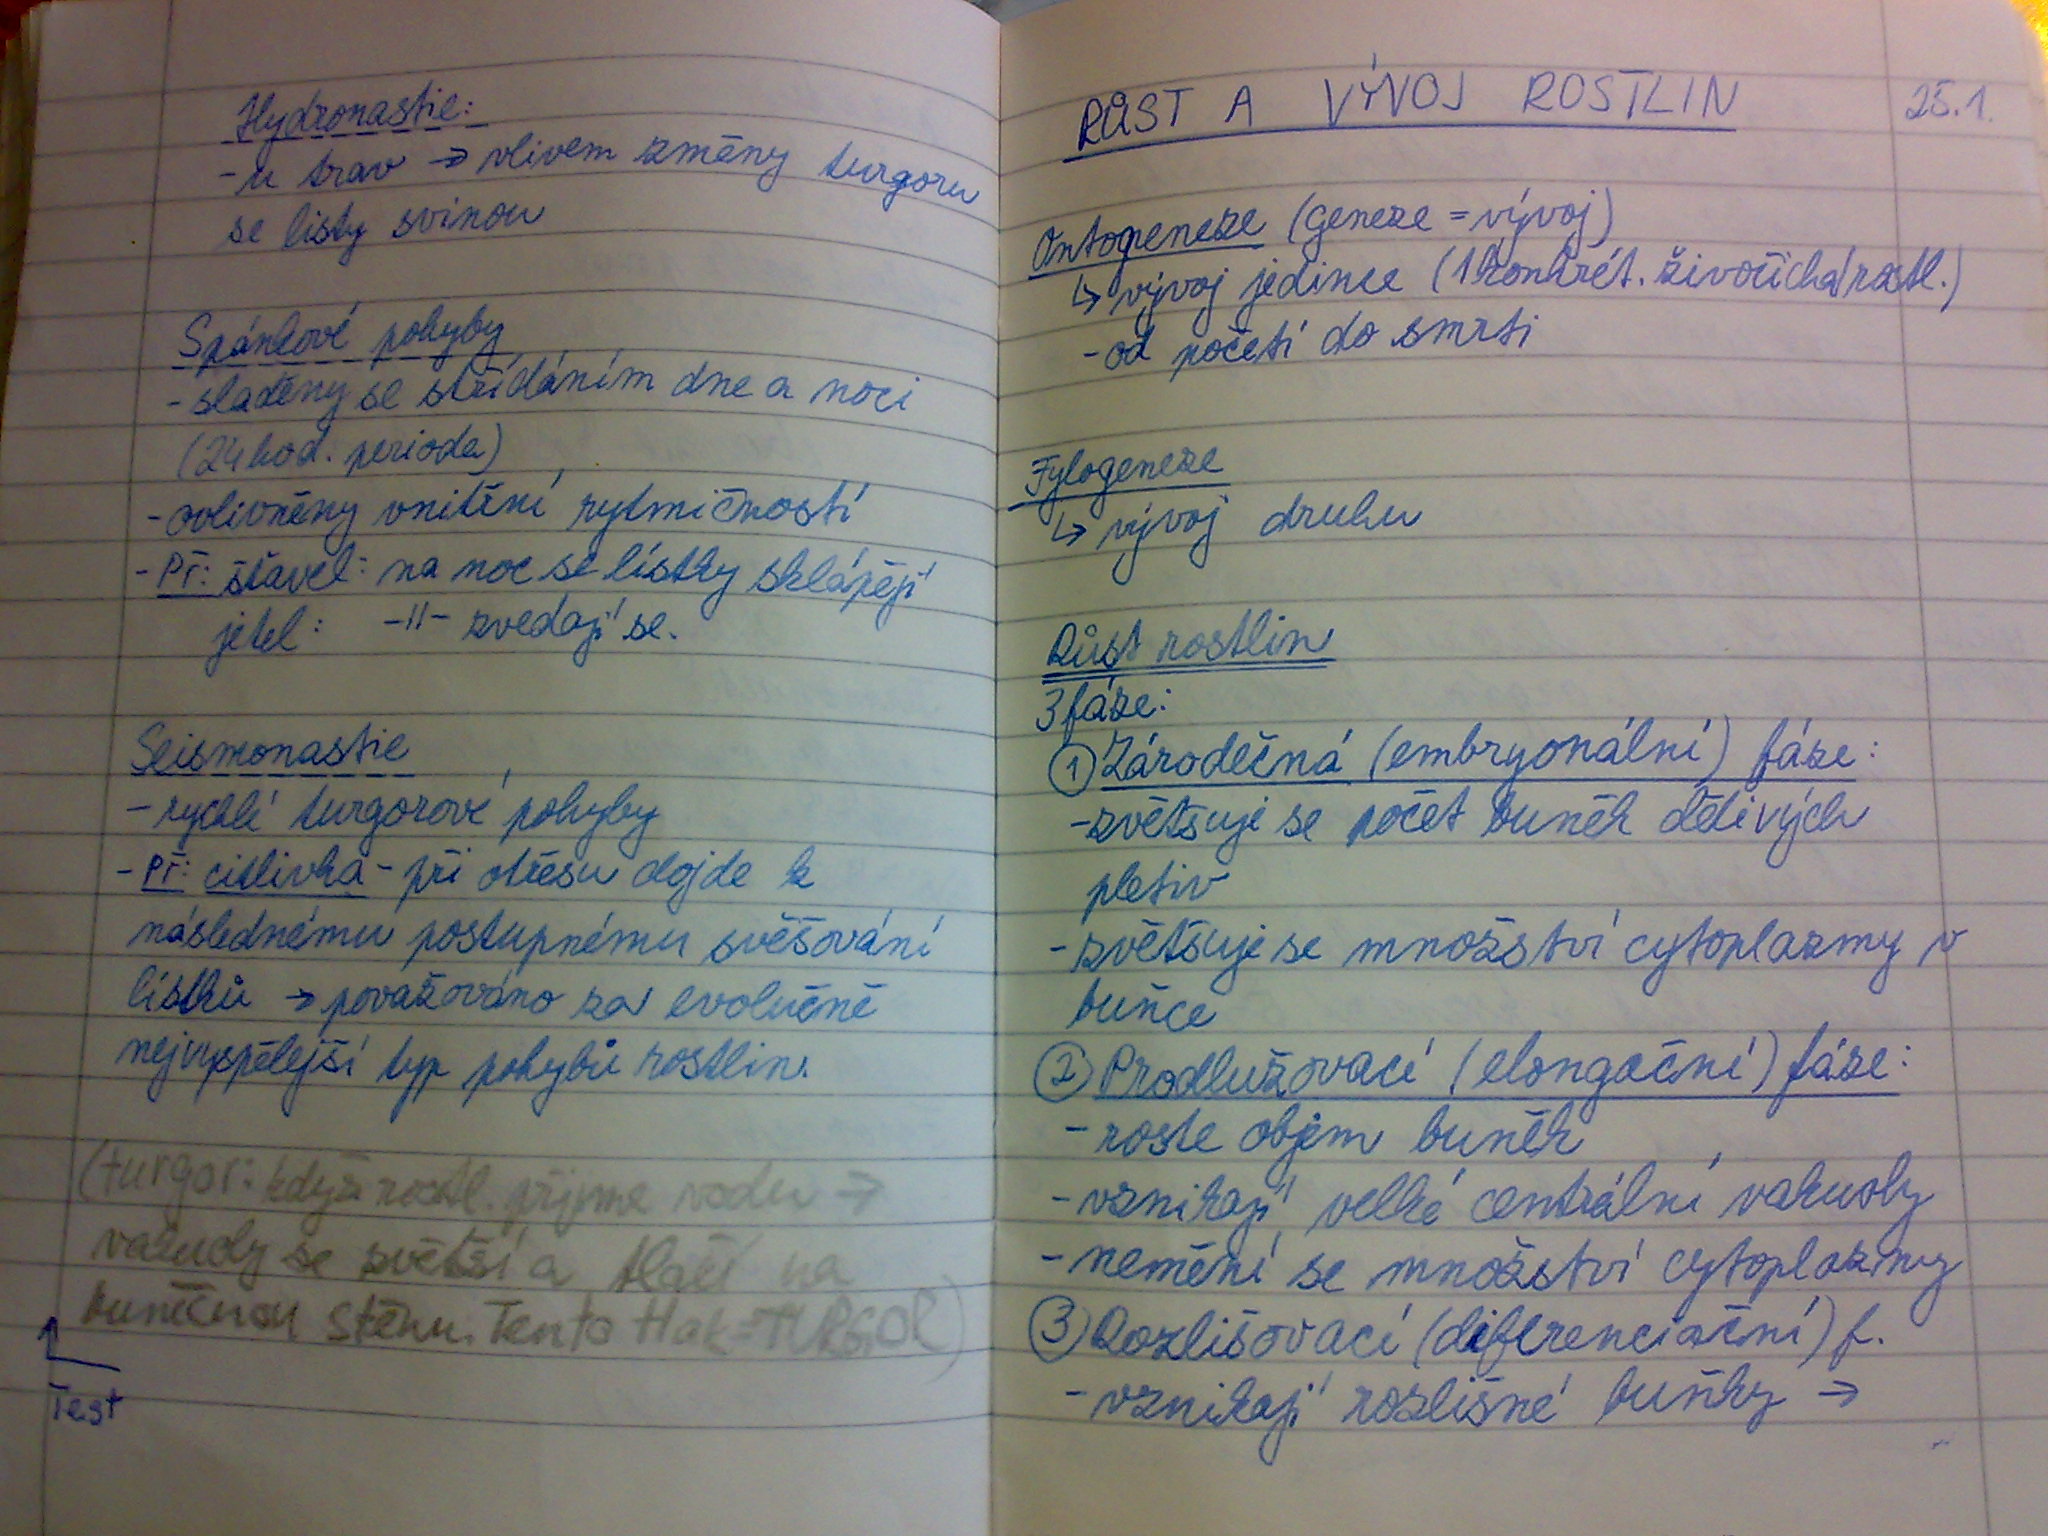 Hydronastie:
- u trav → vlivem změny turgoru
se listy svinou
Spánkové pohyby
- sladěny se střídáním dne a noci
(24 hod. perioda)
- ovlivněny vnitřní rytmičností
- Př: šťavel: na noc se lístky sklápějí
jetel: -II- zvedají se.
Seismonastie
- rychlé turgorové pohyby
- Př: citlivka - při otřesu dojde k
následnému postupnému svěšování
lístků → považováno za evolučně
nejvyspělejší typ pohybů rostlin.
(turgor: když rostl. přijme vodu →
vakuoly se zvětší a tlačí na
buněčnou stěnu. Tento tlak = TURGOR)
Test
RŮST A VÝVOJ ROSTLIN 25.1.
Ontogeneze (geneze = vývoj)
↳ vývoj jedince (1 konkrét. živočicha/rostl.)
- od početí do smrti
Fylogeneze
↳ vývoj druhu
Růst rostlin
3 fáze:
① Zárodečná (embryonální) fáze:
- zvětšuje se počet buněk dělivých
pletiv
- zvětšuje se množství cytoplazmy v
buňce
② Prodlužovací (elongační) fáze:
- roste objem buněk
- vznikají velké centrální vakuoly
- nemění se množství cytoplazmy
③ Rozlišovací (diferenciační) f.
- vznikají rozlišné buňky →